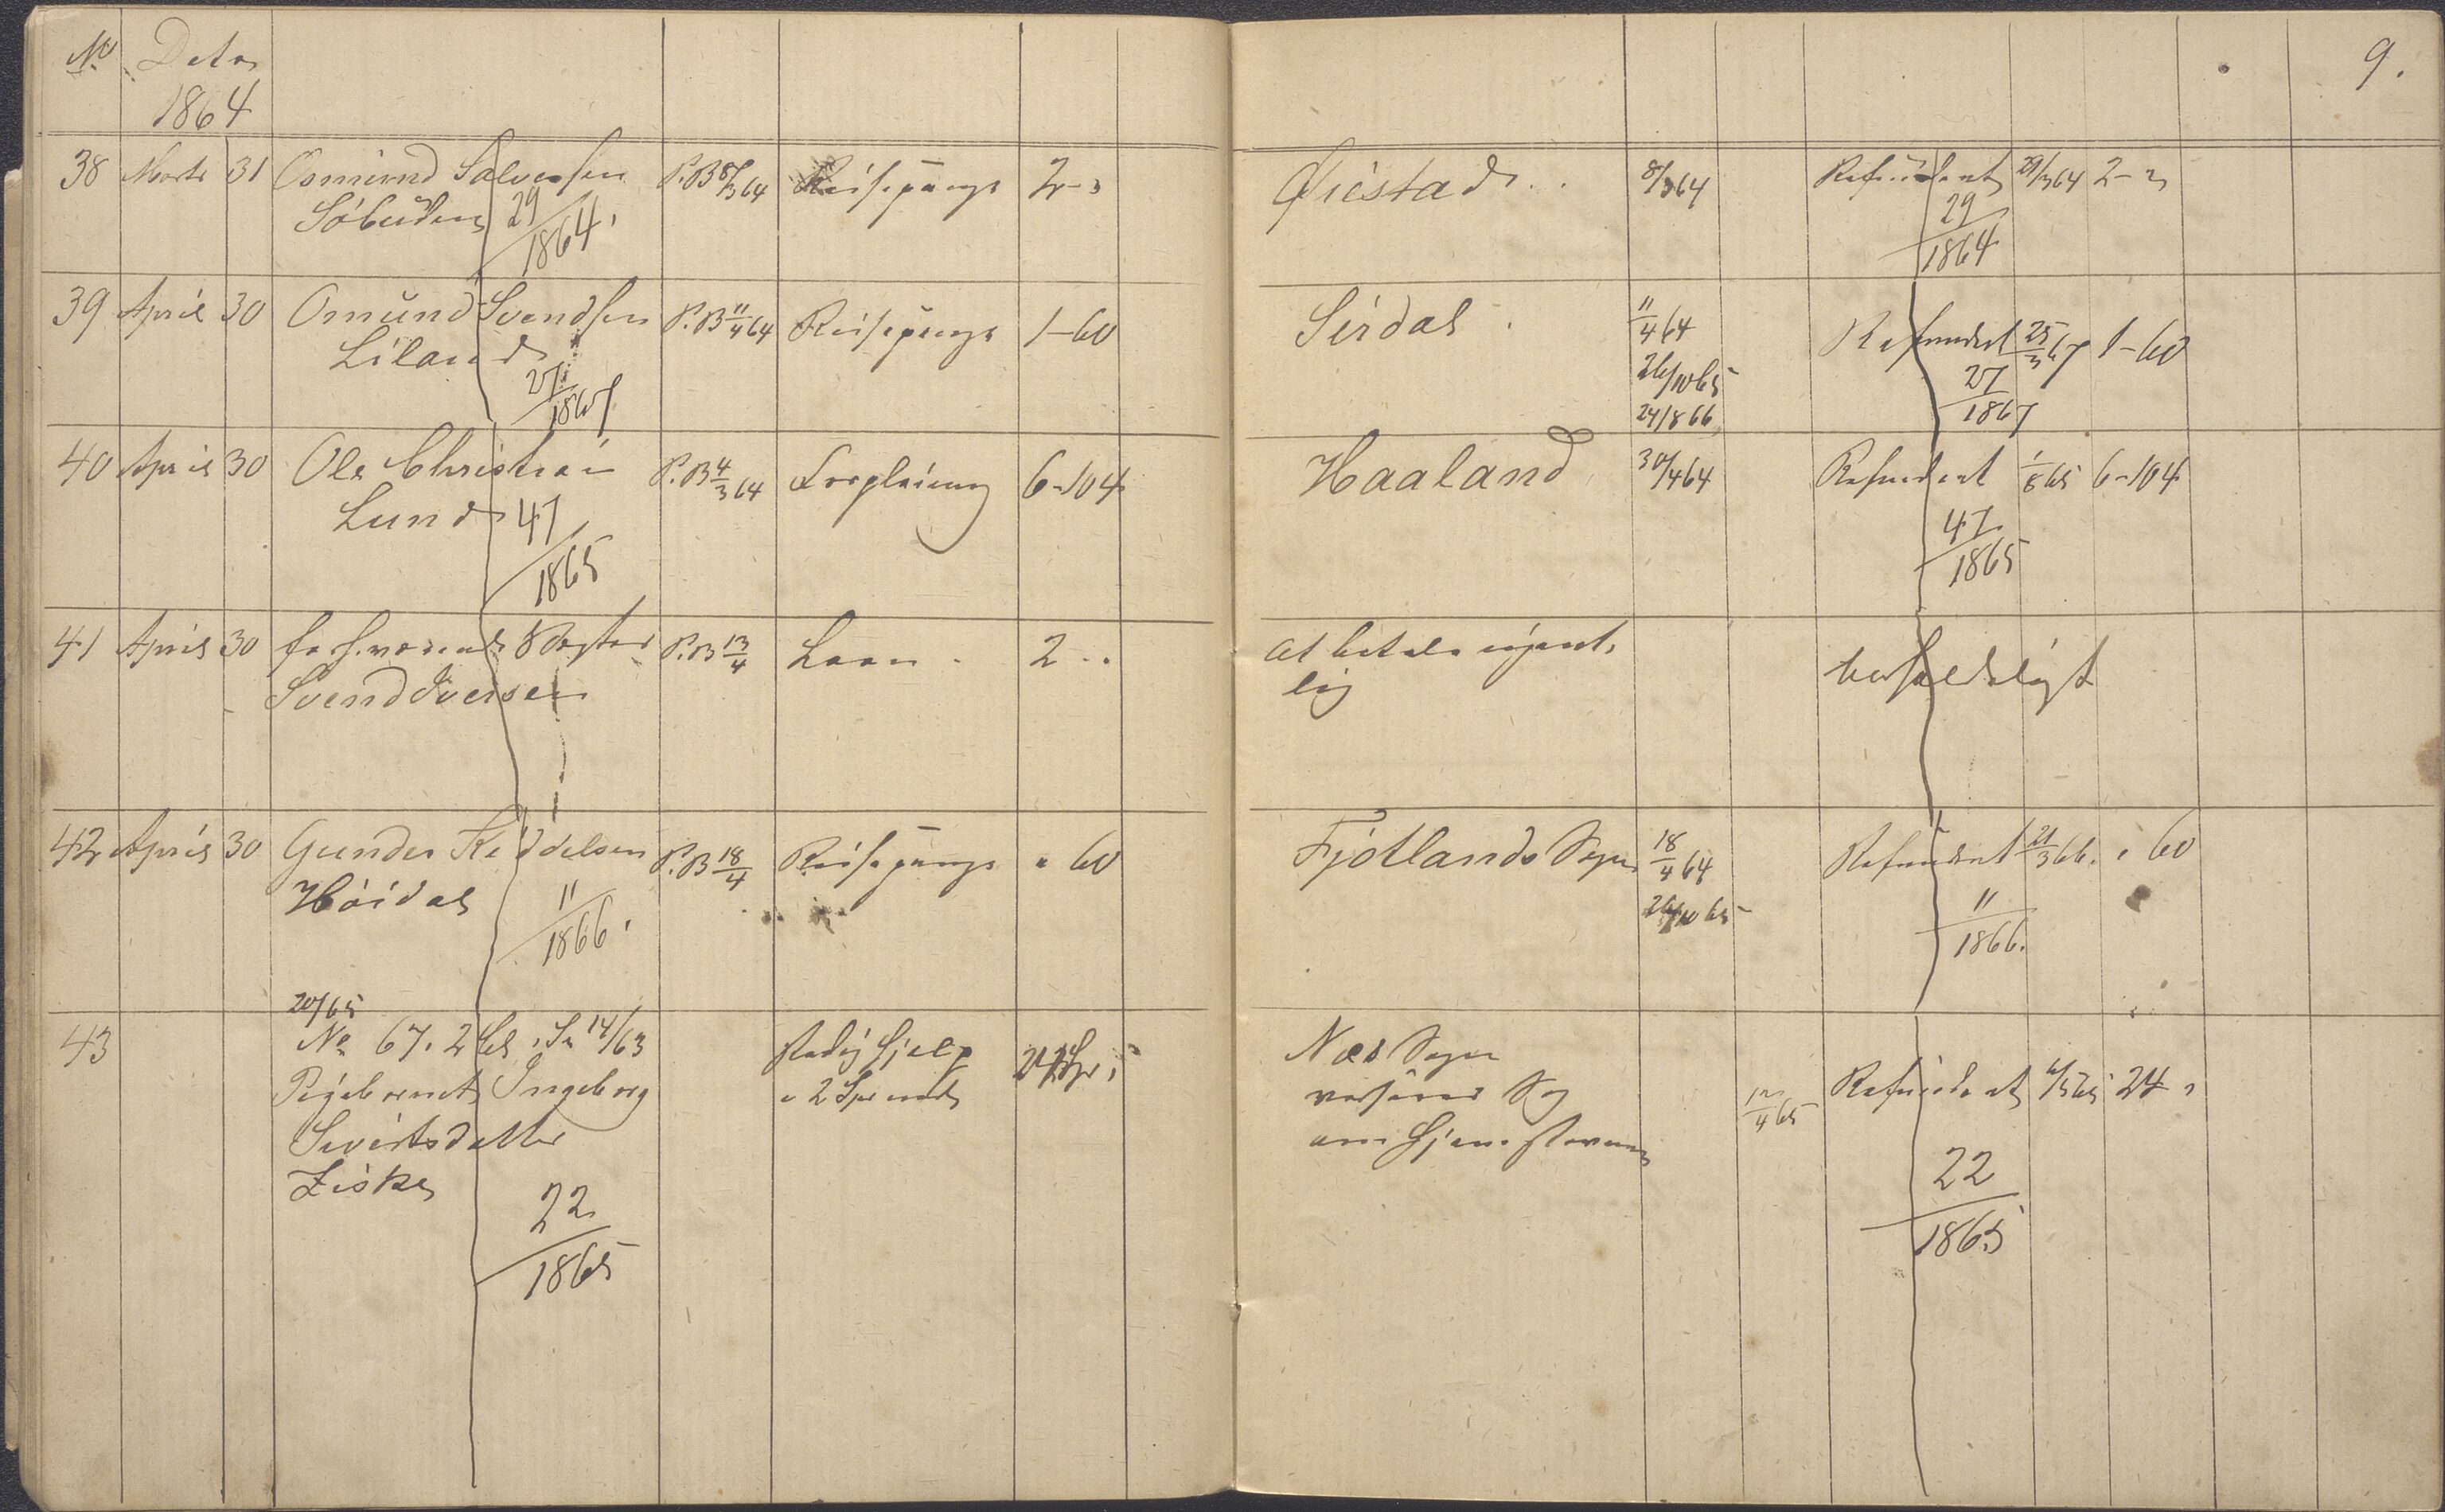 No Dato 9.
1864
38 Marts 31 Osmund Salvesen P.B 8/3 64 Reisepenge 2 - " Øiestad . . 8/3 64 Refunderet 29/3 64 2 - "
29/1864. 29/1864
39 April 30 Omund Svendsen P.B 11/4 64 Reisepenge 1-60 Sirdal . 11/4 64 Refunderet 25/3 67 1-60
Liland 26/10 65
27/1867 24/8 66 27/1867
40 April 30 Ole Christian P.B 4/3 64 Forpleining 6-104 Haaland 30/4 64 Refunderet 1/8 65 6-104
Lund 47/1865 47/1865
41 April 30 forhenværende P.B 13/4 Laan . 2 . . at betale ugent-
Svend Iversen lig
42 April 30 Gunder Keddelsen P.B 18/4 Reisepenge " 60 Fjotlands Sogn 18/4 64 Refunderet 21/3 66. " 60
Höidal 11/1866. 26/10 65 11/1866.
20/65
43 No 67. 2 14/63 24 Næs Sogn
Pigebarnet Ingeborg 12/4 65 Refunderet 24 "
Sivertsdatter
22/1865 22/1865